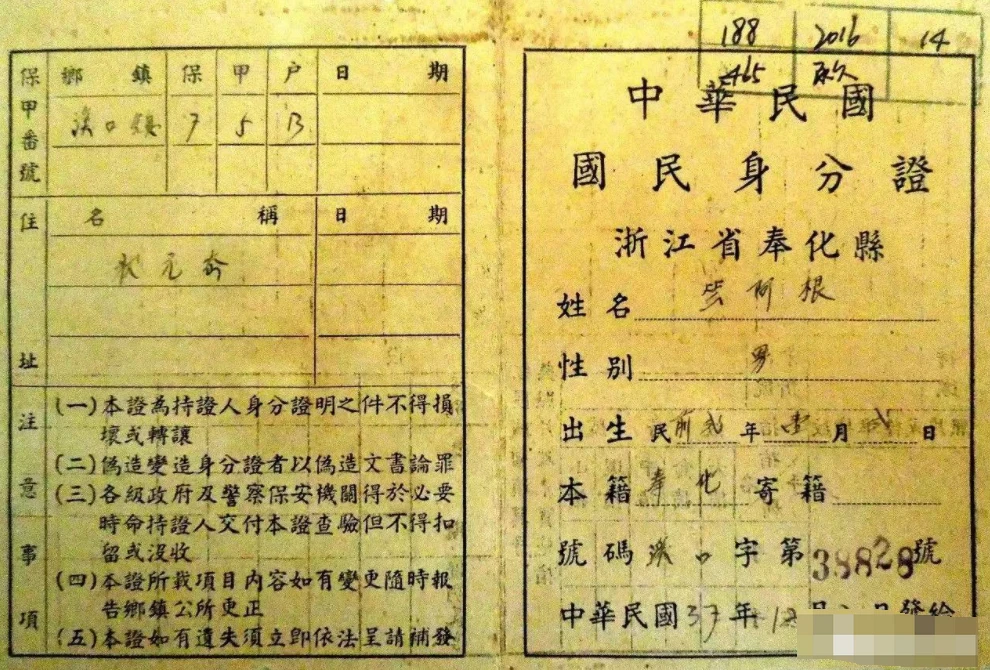 188 2016 14
465 永久
保甲番號
鄉鎮 保 甲 户 日期
溪口鎮 7 5 13
住址
名稱 日期
狀元岙
注意事項
(一)本證為持證人身分證明之件不得損
壞或轉讓
(二)偽造變造身分證者以偽造文書論罪
(三)各級政府及警察保安機關得於必要
時命持證人交付本證查驗但不得扣
留或沒收
(四)本證所載項目內容如有變更隨時報
告鄉鎮公所更正
(五)本證如有遺失須立即依法呈請補發
中華民國
國民身分證
浙江省奉化縣
姓名 阿根
性別 男
出生 民前 年 月 日
本籍 奉化 寄籍
號碼 溪口 字第38828號
中華民國37年12月 日發給